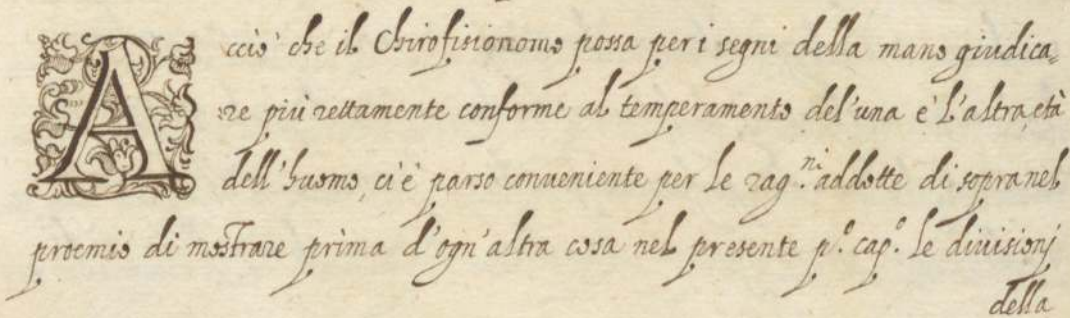 Acciò che il Chirofisionomo possa per i segni della mano giudica=
re più rettamente conforme al temperamento del'una è l'altra età
dell'huomo, ci è parso conueniente per le rag.ni addotte di sopra nel
proemio di mostrare prima d'ogn'altra cosa nel presente p.o cap.o le diuisionj
della